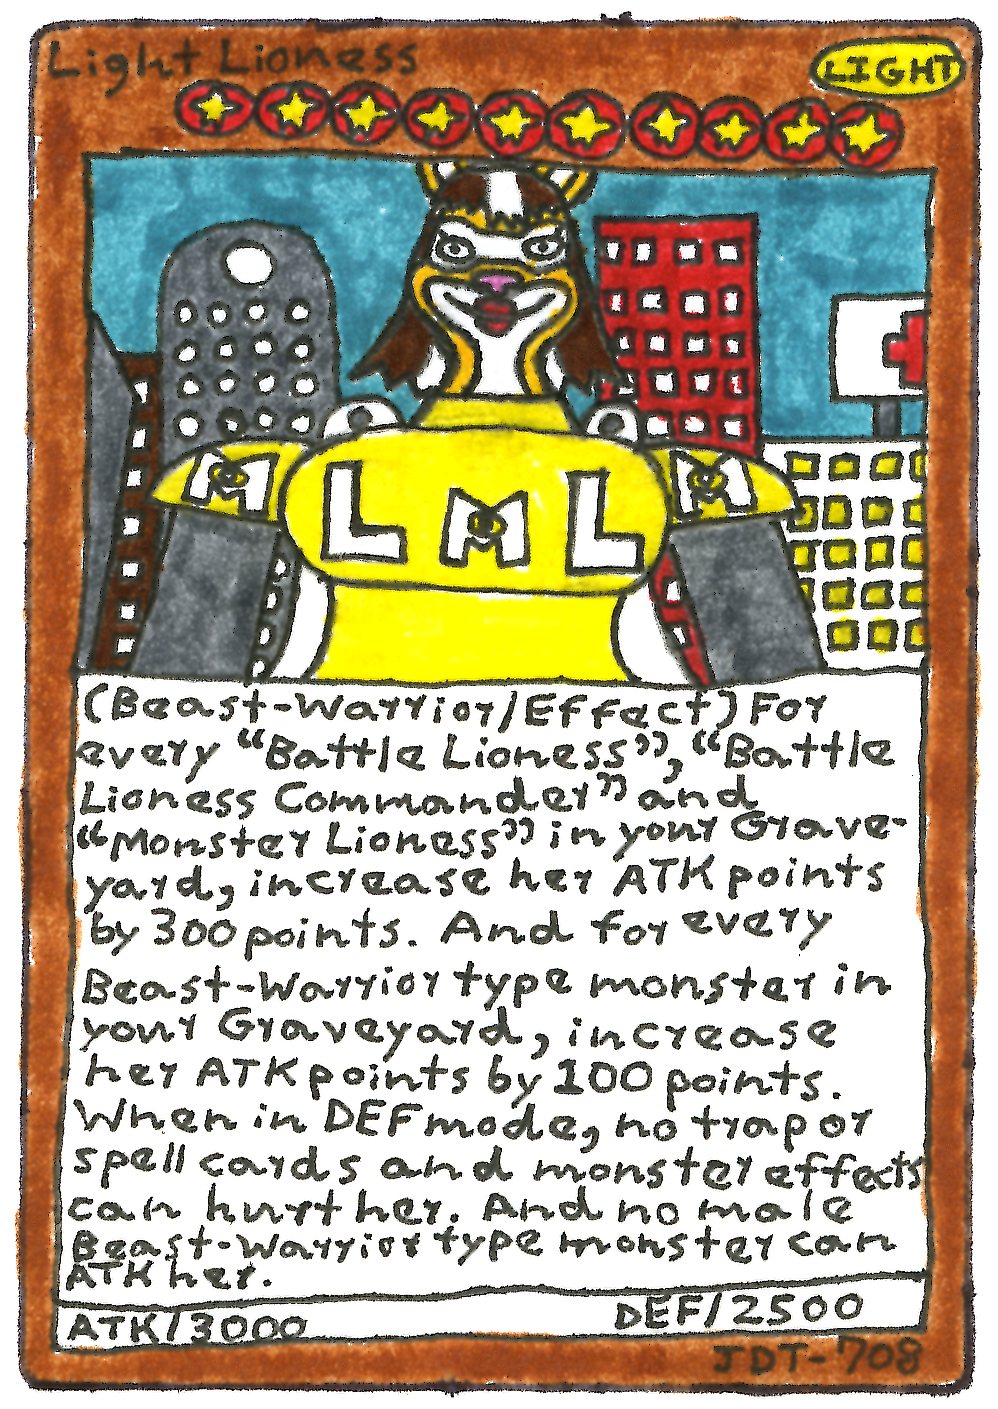 Light Lioness
LIGHT
M L M L M
(Beast-Warrior/Effect) For
every "Battle Lioness", "Battle
Lioness Commander" and
"Monster Lioness" in your Grave-
yard, increase her ATK points
by 300 points. And for every
Beast-Warrior type monster in
your Graveyard, increase
her ATK points by 100 points.
When in DEF mode, no trap or
spell cards and monster effects
can hurt her. And no male
Beast-Warrior type monster can
ATK her.
ATK/3000 DEF/2500
JDT-708